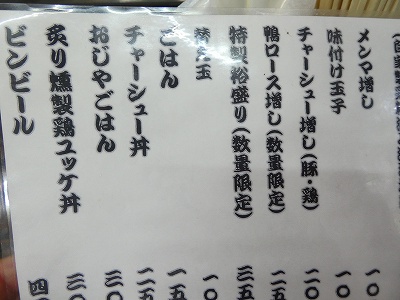 メンマ増し 一〇
味付け玉子 一〇
チャーシュー増し(豚・鶏) 二〇
鴨ロース増し(数量限定) 二五
特製裕盛り(数量限定) 三五
替え玉 一〇
ごはん 一五
チャーシュー丼 二五
おじやごはん 二〇
炙り燻製鶏ユッケ丼 三〇
ビンビール 四